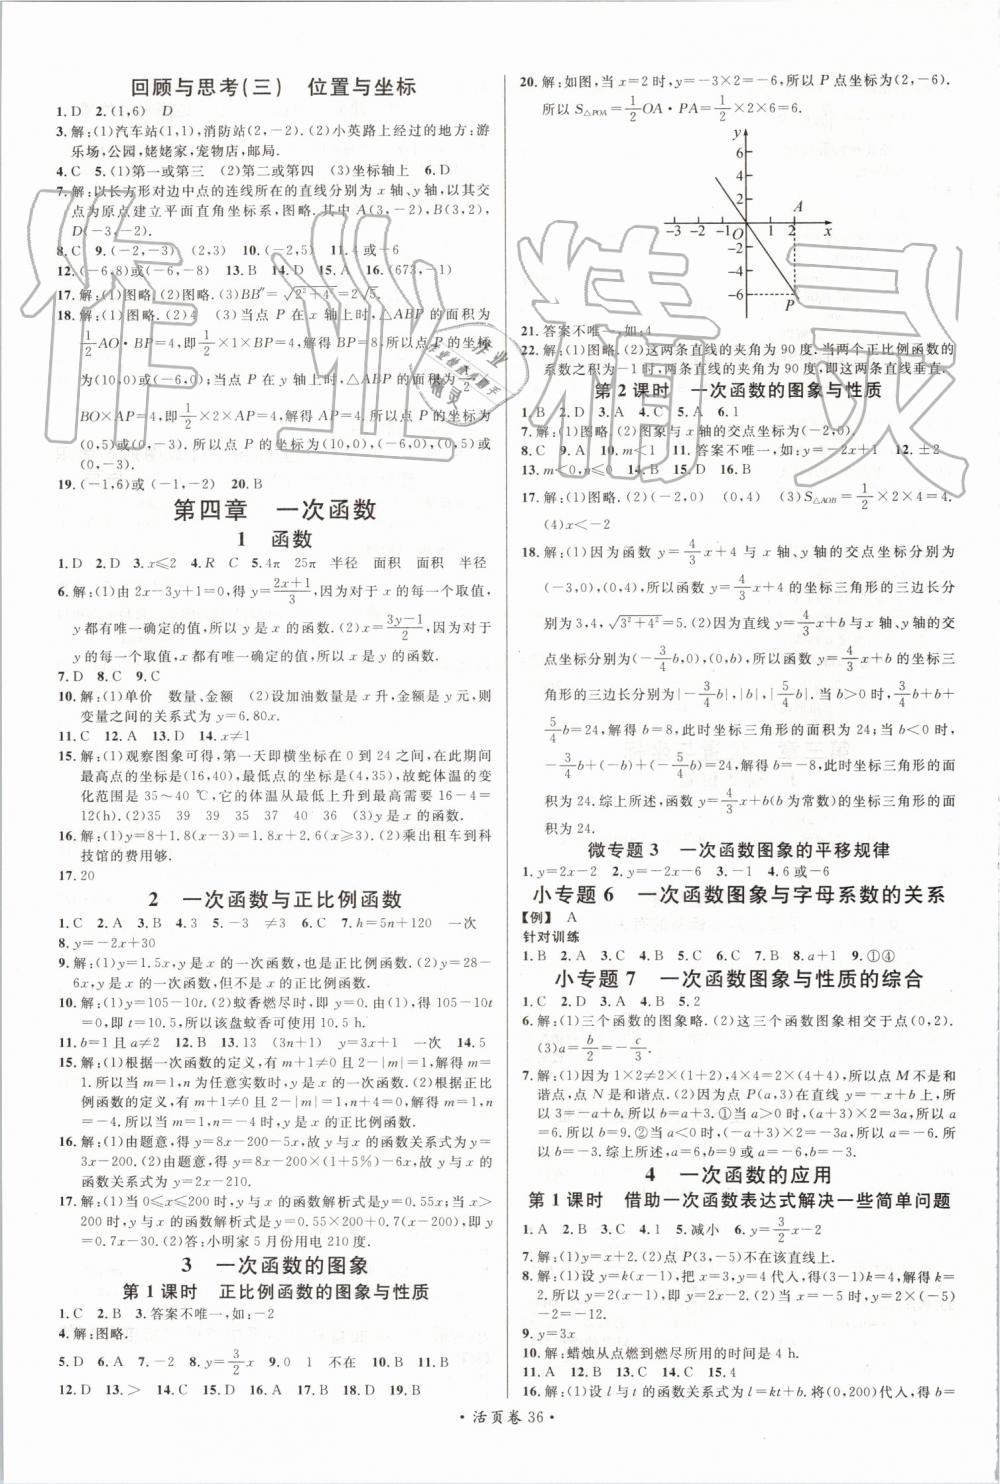 回顾与思考(三) 位置与坐标
1. D 2. (1,6) D
3. 解:(1)汽车站(1,1),消防站(2,-2). (2)小英路上经过的地方:游
乐场,公园,姥姥家,宠物店,邮局.
4. C 5. (1)第一或第三 (2)第二或第四 (3)坐标轴上 6. D
7. 解:以长方形对边中点的连线所在的直线分别为 x 轴、y 轴,以其交
点为原点建立平面直角坐标系,图略. 其中 A(3,-2),B(3,2),
D(-3,-2).
8. C 9. (-2,-3) (2,3) 10. (-2,5) 11. 4 或-6
12. (-6,8)或(-6,-2) 13. B 14. D 15. A 16. (673,-1)
17. 解:(1)图略. (2)图略. (3)BB″=√(2²+4²)=2√5.
18. 解:(1)图略. (2)4 (3)当点 P 在 x 轴上时,△ABP 的面积为
1/2 AO·BP=4,即 1/2×1×BP=4,解得 BP=8. 所以点 P 的坐标
为(10,0)或(-6,0);当点 P 在 y 轴上时,△ABP 的面积为 1/2
BO×AP=4,即 1/2×2×AP=4,解得 AP=4. 所以点 P 的坐标为
(0,5)或(0,-3). 所以点 P 的坐标为(10,0),(-6,0),(0,5)或
(0,-3).
19. (-1,6)或(-1,-2) 20. B
第四章 一次函数
1 函数
1. D 2. D 3. x≤2 4. R C 5. 4π 25π 半径 面积 面积 半径
6. 解:(1)由 2x-3y+1=0,得 y=(2x+1)/3,因为对于 x 的每一个取值,
y 都有唯一确定的值,所以 y 是 x 的函数. (2)x=(3y-1)/2,因为对于
y 的每一个取值,x 都有唯一确定的值,所以 x 是 y 的函数.
7. D 8. C 9. C
10. 解:(1)单价 数量、金额 (2)设加油数量是 x 升,金额是 y 元,则
变量之间的关系式为 y=6.80x.
11. C 12. A 13. D 14. x≠1
15. 解:(1)观察图象可得,第一天即横坐标在 0 到 24 之间,在此期间
最高点的坐标是(16,40),最低点的坐标是(4,35),故蛇体温的变
化范围是 35~40 ℃,它的体温从最低上升到最高需要 16-4=
12(h). (2)35 39 35 37 40 36 (3)是 x 的函数.
16. 解:(1)y=8+1.8(x-3)=1.8x+2.6(x≥3). (2)乘出租车到科
技馆的费用够.
17. 20
2 一次函数与正比例函数
1. C 2. A 3. B 4. 3 5. -3 ≠3 6. C 7. h=5n+120 一次
8. y=-2x+30
9. 解:(1)y=1.5x,y 是 x 的一次函数,也是正比例函数. (2)y=28-
6x,y 是 x 的一次函数,但不是 x 的正比例函数.
10. 解:(1)y=105-10t. (2)蚊香燃尽时,即 y=0,由(1),得 105-10t
=0,即 t=10.5,所以该盘蚊香可使用 10.5 h.
11. b=1 且 a≠2 12. B 13. 13 (3n+1) y=3x+1 一次 14. 5
15. 解:(1)根据一次函数的定义,有 m+1≠0 且 2-|m|=1,解得 m=
1. 所以当 m=1,n 为任意实数时,y 是 x 的一次函数. (2)根据正比
例函数的定义,有 m+1≠0 且 2-|m|=1,n+4=0,解得 m=1,n=
-4. 所以当 m=1,n=-4 时,y 是 x 的正比例函数.
16. 解:(1)由题意,得 y=60x,故 y 与 x 的函数关系式为 y=60x.
(2)由题意,得 y=60x-200×(1+5%)-6x=2x-210. 故 y 与 x
的函数关系式为 y=2x-210.
17. 解:(1)当 0≤x≤200 时,y 与 x 的函数解析式是 y=0.55x;当 x>
200 时,y 与 x 的函数解析式是 y=0.55×200+0.7(x-200),即 y
=0.7x-30. (2)答:小明家 5 月份用电 210 度.
3 一次函数的图象
第 1 课时 正比例函数的图象与性质
1. C 2. B 3. 答案不唯一,如:-2
4. 解:图略.
5. D 6. A 7. -2 8. y=3/2 x 9. 0 1 不在 10. B 11. B
12. D 13. > 14. C 15. D 16. B 17. D 18. A 19. C
20. 解:如图,当 x=2 时,y=-3×2=-6,所以 P 点坐标为(2,-6).
所以 S△POA=1/2 OA·PA=1/2×2×6=6.
y
6
4
2
A
-3 -2 -1 O 1 2 3 x
-2
-4
-6 P
21. 答案不唯一,如:4
22. 解:(1)图略. (2)这两条直线的夹角为 90 度. 当两个正比例函数的
系数之积为-1 时,两条直线的夹角为 90 度,即这两条直线垂直.
第 2 课时 一次函数的图象与性质
1. B 2. D 3. A 4. C 5. A 6. 1
7. 解:(1)图略. (2)图象与 x 轴的交点坐标为(-2,0).
8. C 9. A 10. m<1 11. 答案不唯一,如:y=-2x+1 12. ±2
13. m<0,n≤0 14. B 15. D 16. B
17. 解:(1)图略. (2)(-2,0) (0,4) (3)S△AOB=1/2×2×4=4.
(4)x<-2
18. 解:(1)因为函数 y=4/3 x+4 与 x 轴、y 轴的交点坐标分别为
(-3,0),(0,4),所以函数 y=4/3 x+4 的坐标三角形的三边长分
别为 3,4,√(3²+4²)=5. (2)因为直线 y=4/3 x+b 与 x 轴、y 轴的交
点坐标分别为(-3/4 b,0),(0,b),所以函数 y=4/3 x+b 的坐标三角
形的三边长分别为|-3/4 b|,|b|,|5/4 b|. 当 b>0 时,3/4 b+b+
5/4 b=24,解得 b=8,此时坐标三角形的面积为 24;当 b<0 时,
-3/4 b+(-b)-5/4 b=24,解得 b=-8,此时坐标三角形的面
积为 24. 综上所述,函数 y=4/3 x+b(b 为常数)的坐标三角形的面
积为 24.
微专题 3 一次函数图象的平移规律
1. y=2x-2 2. y=-2x-6 3. -1 4. 6 或-6
小专题 6 一次函数图象与字母系数的关系
【例】 A
针对训练
1. B 2. A 3. C 4. B 5. C 6. C 7. B 8. a+1 9. ①④
小专题 7 一次函数图象与性质的综合
1. C 2. D 3. A 4. B 5. 2
6. 解:(1)三个函数的图象略. (2)这三个函数图象相交于点(0,2).
(3)a=b/2=-c/3.
7. 解:(1)因为 1×2≠2×(1+2),4×4=2×(4+4),所以点 M 不是和
谐点,点 N 是和谐点. (2)因为点 P(a,3)在直线 y=-x+b 上,所
以 3=-a+b. ①当 a>0 时,因为(a+3)×2=3a,所以 a=6. 所以 a=
6. 所以 b=9. ②当 a<0 时,(-a+3)×2=-3a,所以 a=
-6. 所以 b=-3. 综上所述,a=6,b=9 或 a=-6,b=-3.
4 一次函数的应用
第 1 课时 借助一次函数表达式解决一些简单问题
1. A 2. B 3. C 4. 1 5. 减小 6. y=3/2 x-2
7. 解:(1)y=-2x-2. (2)点 P(3,-5)不在该直线上.
12. A 13. D 14. C 15. 4
9. y=3x
10. 解:蜡烛从点燃到燃尽所用的时间是 4 h.
16. 解:(1)设 l 与 t 的函数关系式为 l=kt+b. 将(0,200)代人,得 b=
·活页卷 36·